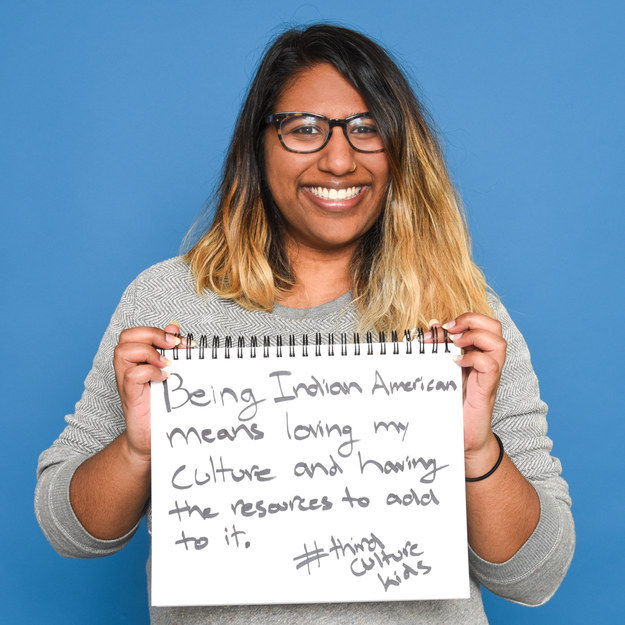 Being Indian American
means loving my
culture and having
the resources to add
to it.
#third
culture
kids